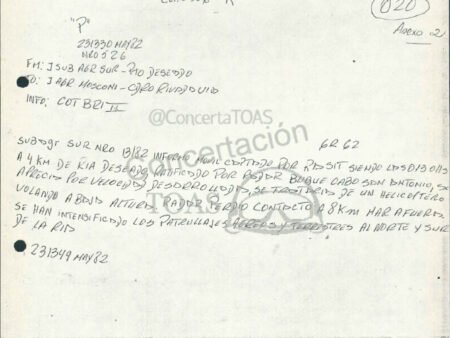 020
"P"
Anexo 2
231330 MAY 82
NRO 526
FM: J SUB AGR SUR - PTO DESEADO
TO: J AGR MOSCONI - CDRO RIVADAVIA
INFO: COT BRI II
@ConcertaTOAS
Concertación
TOAS
GR 62
SUBAGR SUR NRO 13/82 INFORMO MOVIL CAPTADO POR RASIT SIENDO LAS
A 4 KM DE RIA DESEADO RATIFICADO POR RADAR BUQUE CABO SAN ANTONIO, SE
APRECIA POR VELOCIDAD DESARROLLADA, SE TRATARIA DE UN HELICOPTERO
VOLANDO A BAJA ALTURA. RADAR PERDIO CONTACTO A 8 KM MAR AFUERA.
SE HAN INTENSIFICADO LOS PATRULLAJES AEREOS Y TERRESTRES AL NORTE Y SUR
DE LA RIA
231349 MAY 82